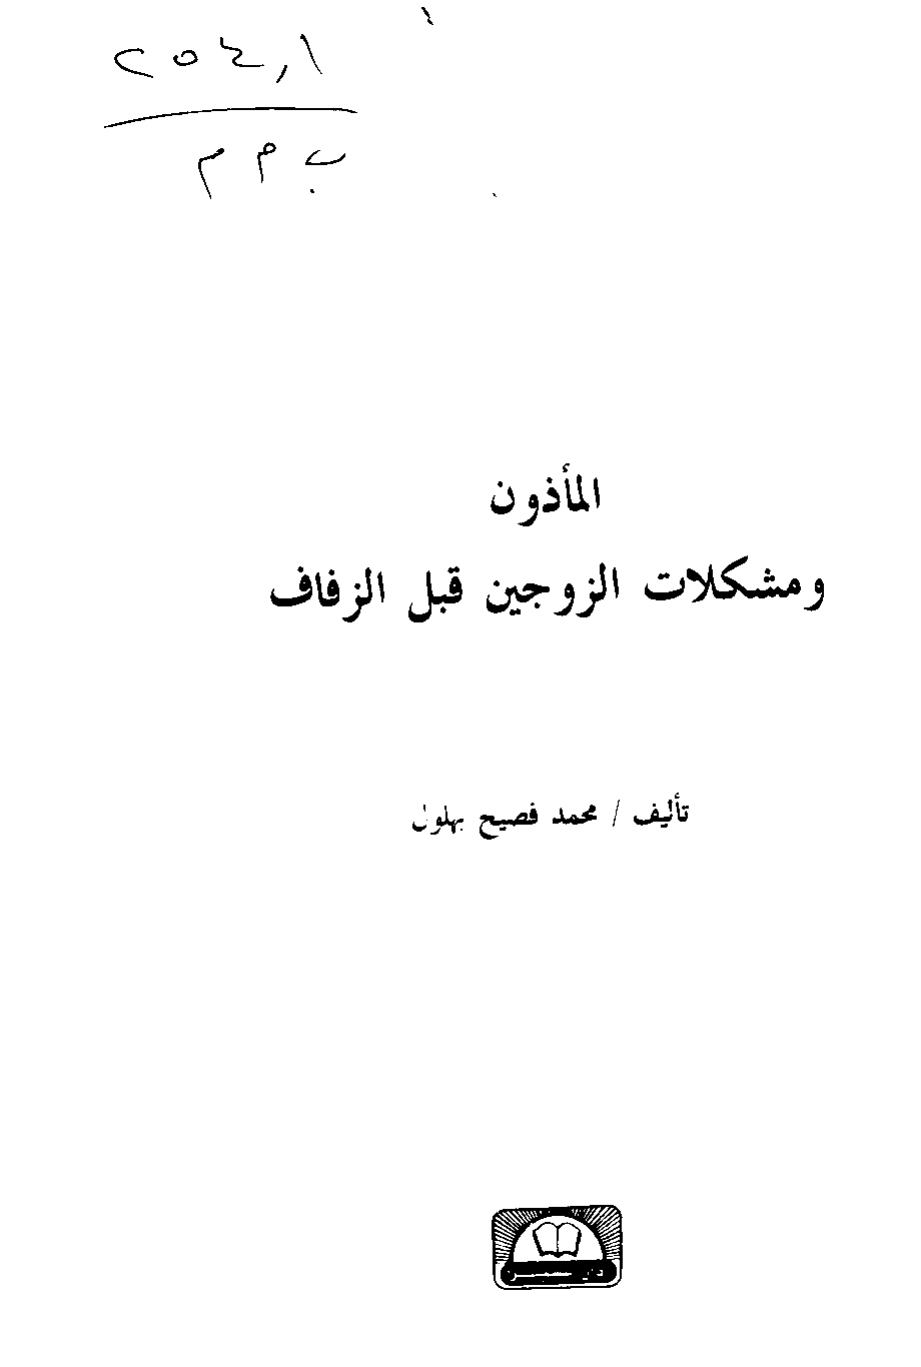 ٢٥٤,١
ب م م
المأذون
ومشكلات الزوجين قبل الزفاف
تأليف / محمد فصيح بهلول